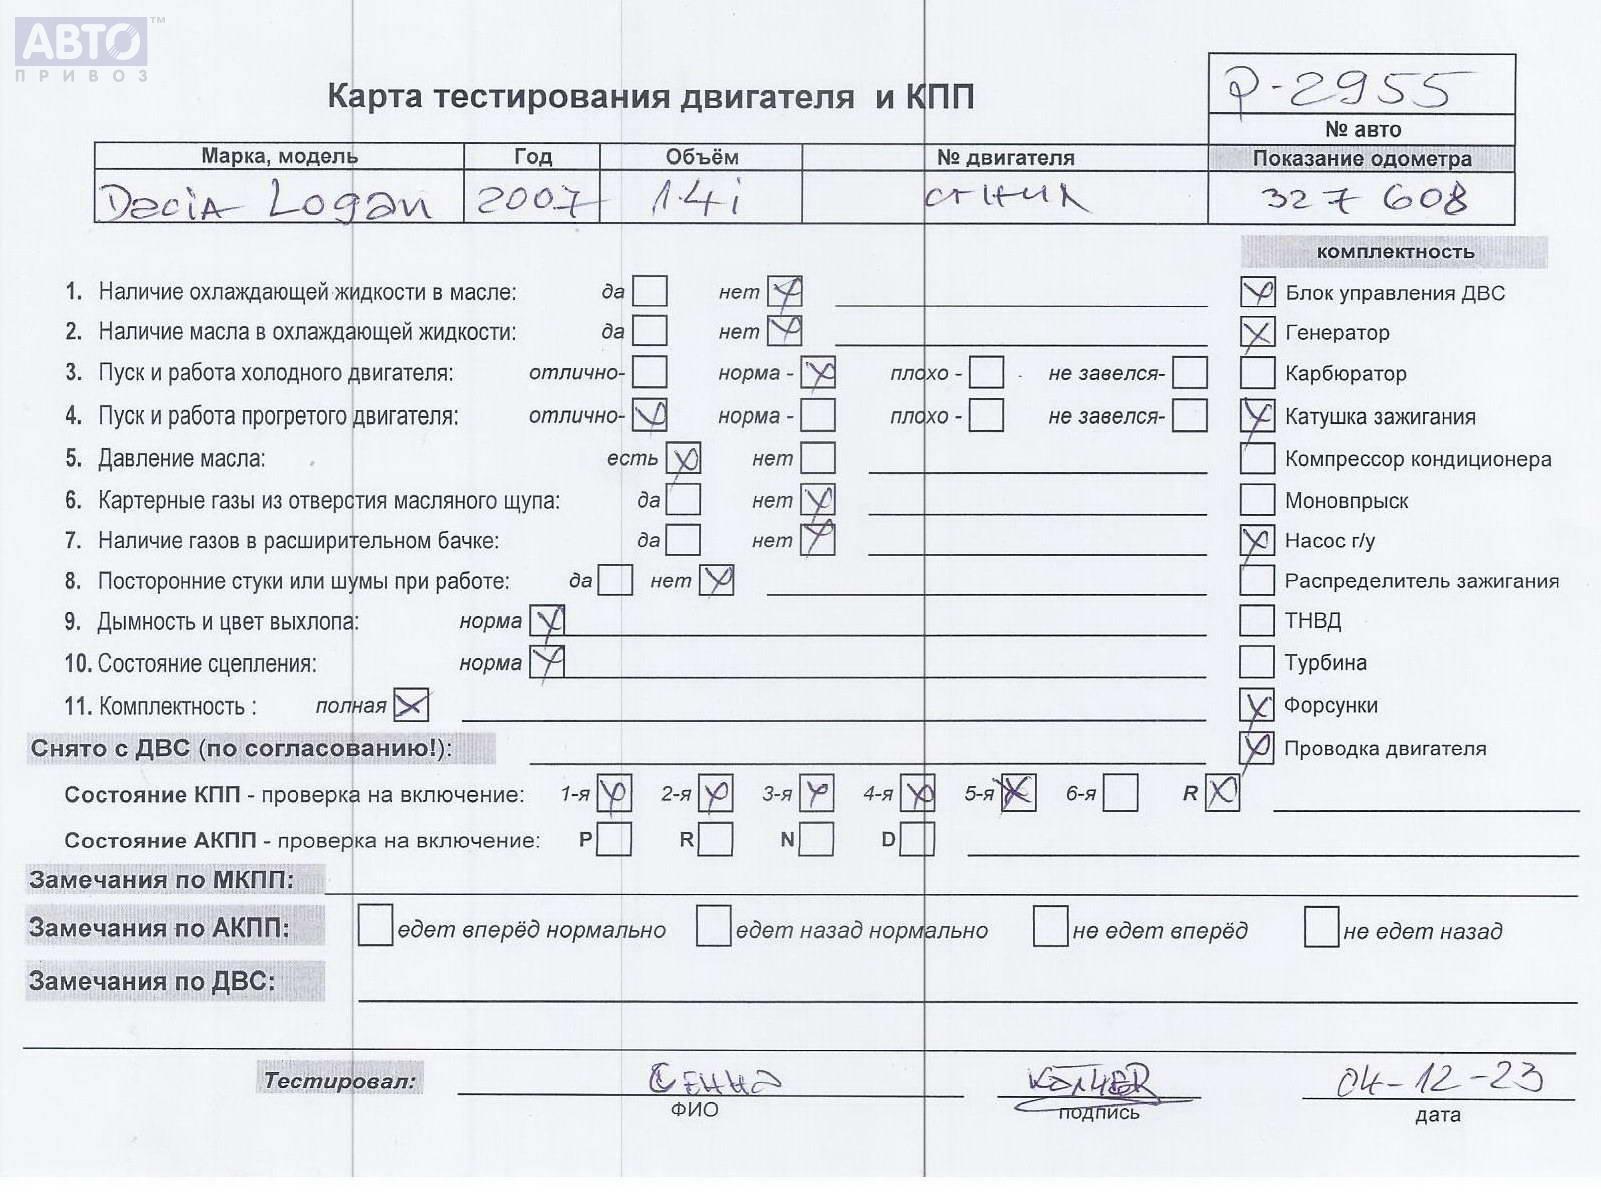 АВТО™
ПРИВОЗ
Карта тестирования двигателя и КПП
P-2955
№ авто
Марка, модель Год Объём № двигателя Показание одометра
Dacia Logan 2007 1.4i сгнил 327 608
комплектность
1. Наличие охлаждающей жидкости в масле: да нет
Блок управления ДВС
2. Наличие масла в охлаждающей жидкости: да нет
Генератор
3. Пуск и работа холодного двигателя: отлично- норма - плохо - не завелся-
Карбюратор
4. Пуск и работа прогретого двигателя: отлично- норма - плохо - не завелся-
Катушка зажигания
5. Давление масла: есть нет
Компрессор кондиционера
6. Картерные газы из отверстия масляного щупа: да нет
Моновпрыск
7. Наличие газов в расширительном бачке: да нет
Насос г/у
8. Посторонние стуки или шумы при работе: да нет
Распределитель зажигания
9. Дымность и цвет выхлопа: норма
ТНВД
10. Состояние сцепления: норма
Турбина
11. Комплектность : полная
Форсунки
Снято с ДВС (по согласованию!):
Проводка двигателя
Состояние КПП - проверка на включение: 1-я 2-я 3-я 4-я 5-я 6-я R
Состояние АКПП - проверка на включение: P R N D
Замечания по МКПП:
Замечания по АКПП: едет вперёд нормально едет назад нормально не едет вперёд не едет назад
Замечания по ДВС:
Тестировал: 04-12-23
ФИО подпись дата